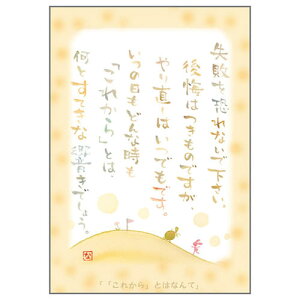 失敗を恐れないで下さい。
後悔はつきものですが、
やり直しはいつでもです。
いつの日もどんな時も
「これから」とは、
何とすてきな響きでしょう。
「「これから」とはなんて」